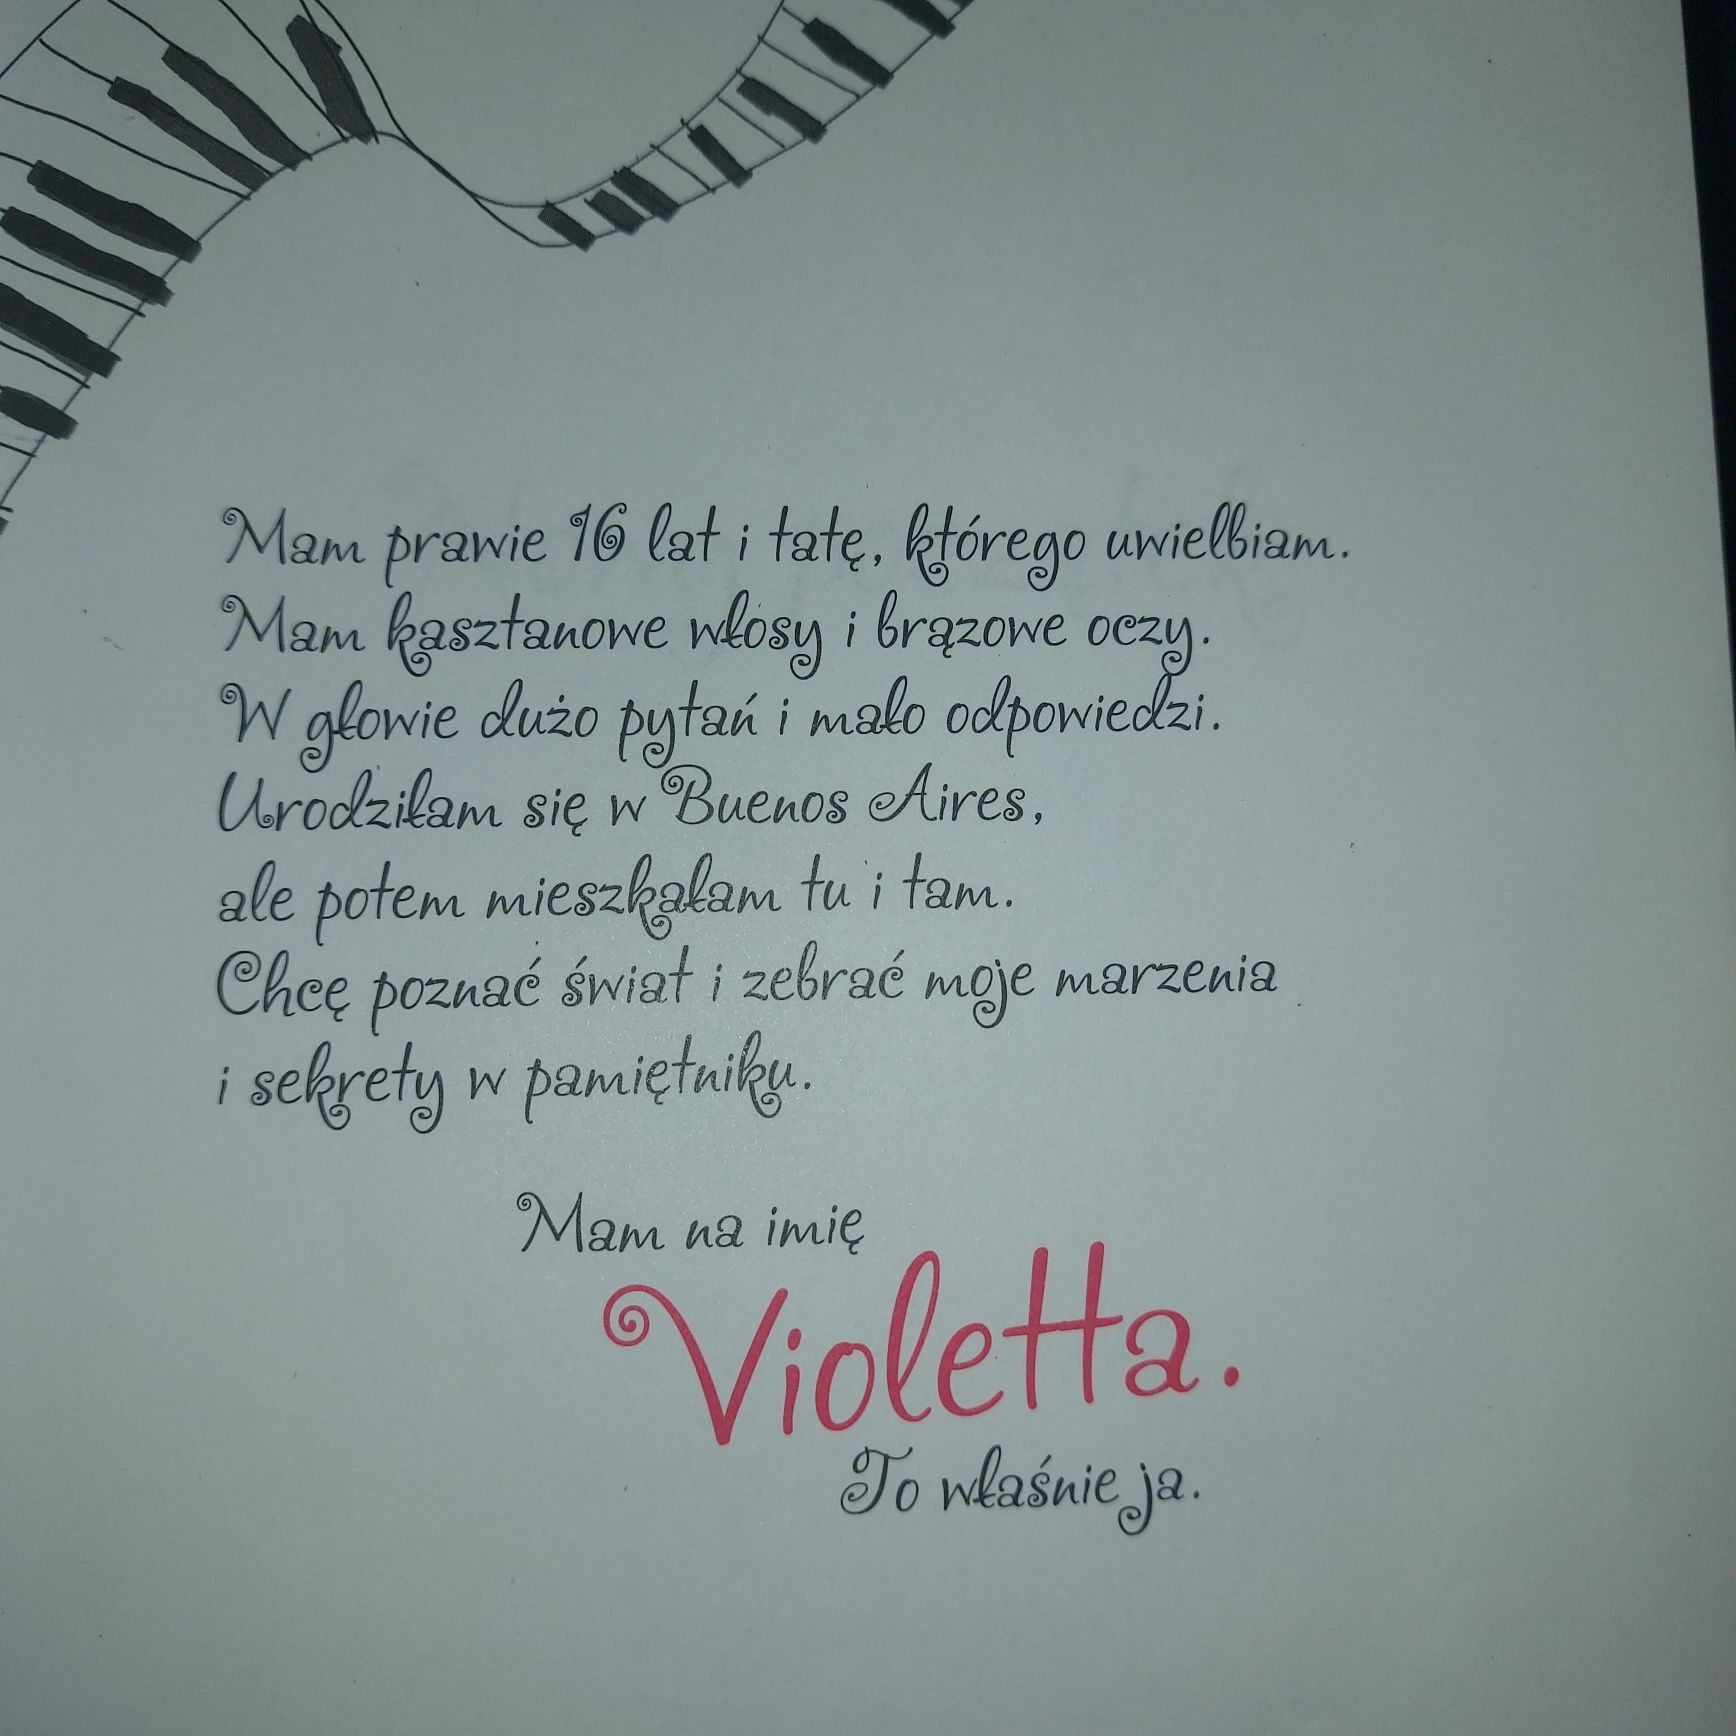 Mam prawie 16 lat i tatę, którego uwielbiam.
Mam kasztanowe włosy i brązowe oczy.
W głowie dużo pytań i mało odpowiedzi.
Urodziłam się w Buenos Aires,
ale potem mieszkałam tu i tam.
Chcę poznać świat i zebrać moje marzenia
i sekrety w pamiętniku.
Mam na imię
Violetta.
To właśnie ja.